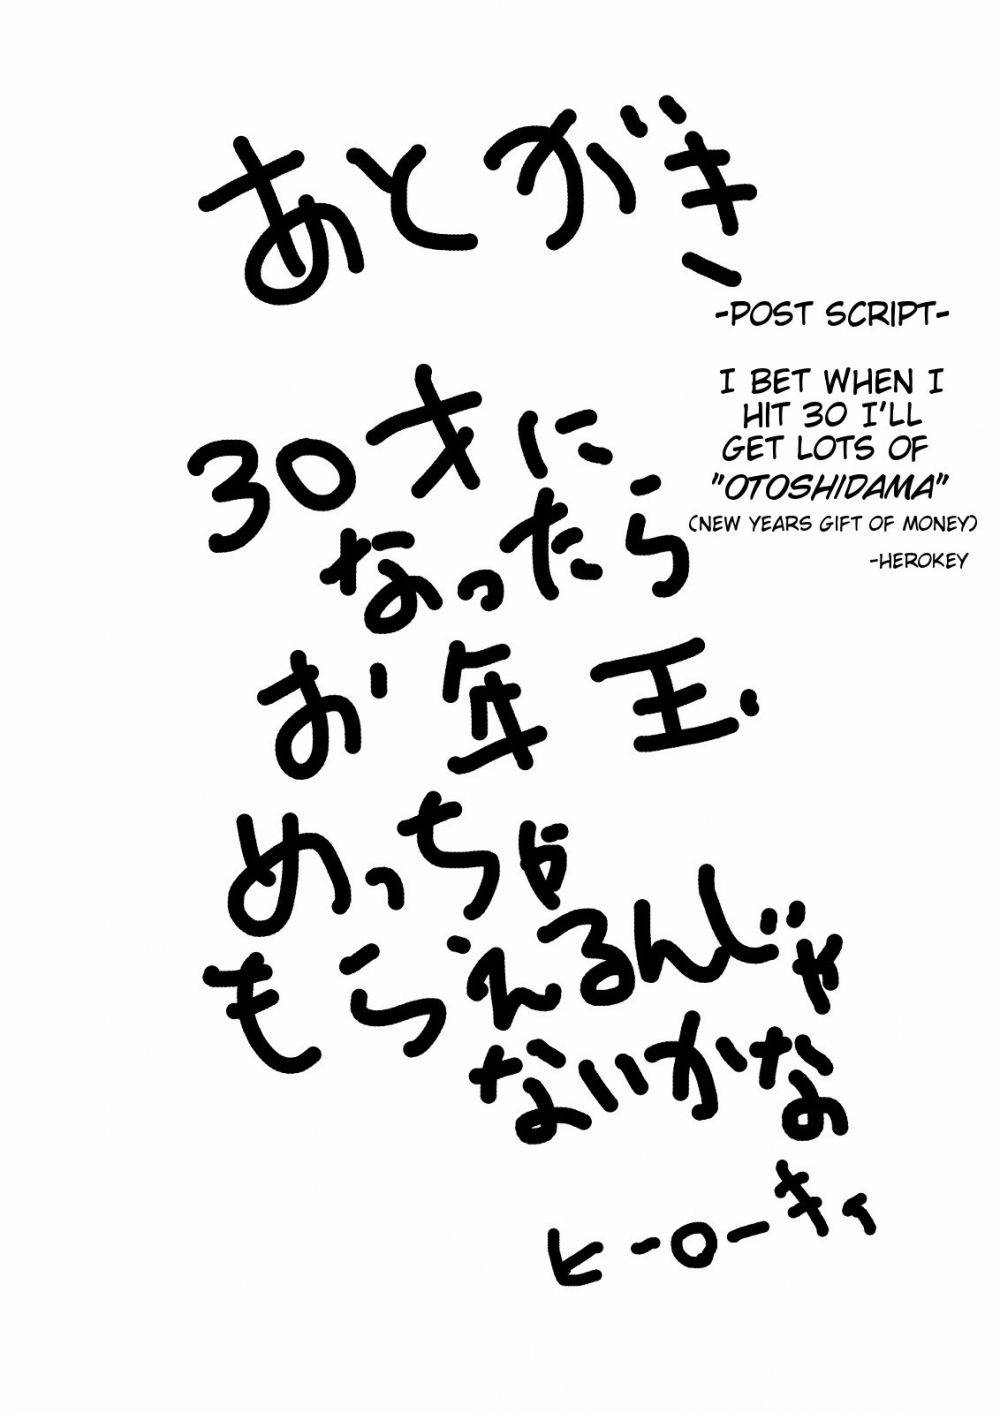 あとがき
-POST SCRIPT-
I BET WHEN I
HIT 30 I'LL
GET LOTS OF
"OTOSHIDAMA"
(NEW YEARS GIFT OF MONEY)
-HEROKEY
30才に
なったら
お年玉
めっちゃ
もらえるんじゃ
ないかな
ヒーローキィ